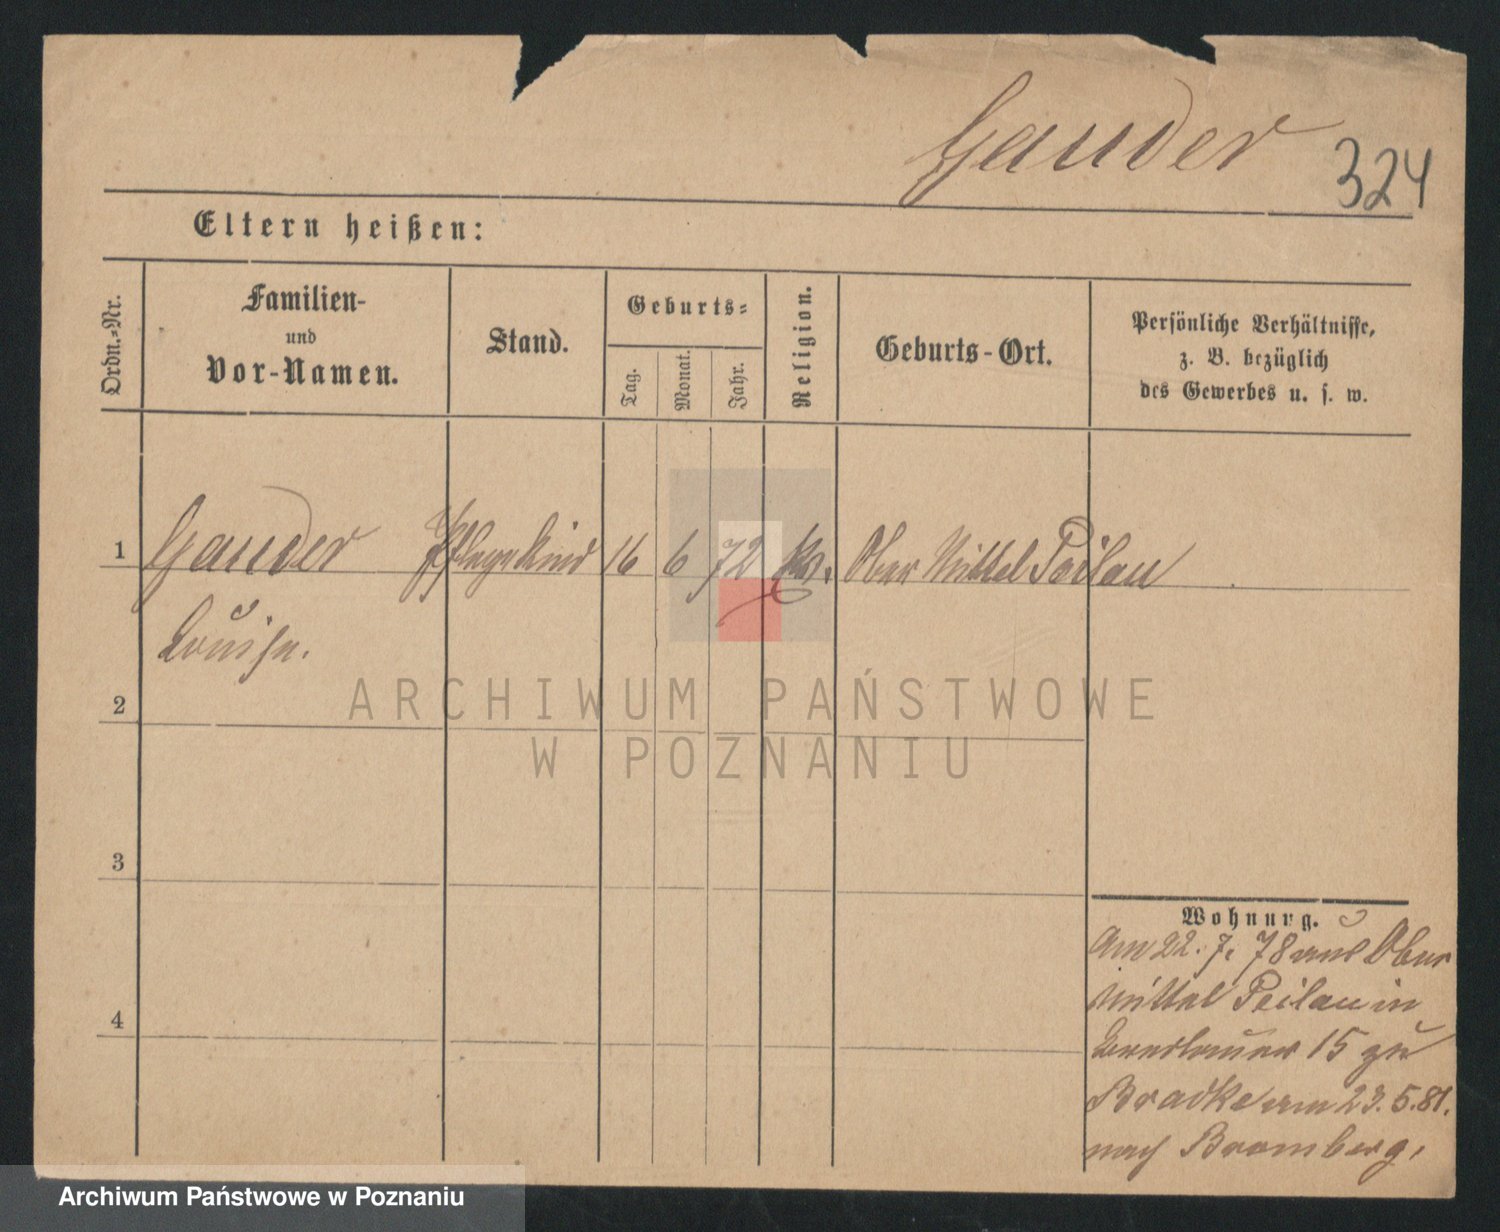 Gander
324
Eltern heißen:
Ordn.-Nr.
Familien-
und
Vor-Namen.
Stand.
Geburts-
Tag.
Monat.
Jahr.
Religion.
Geburts-Ort.
Persönliche Verhältnisse,
z. B. bezüglich
des Gewerbes u. s. w.
1 Gander Pflegekind 16 6 72 Ober Mittel Peilau
Louise.
2
3
4
Wohnung.
Am 22. 7. 78 aus Ober
Mittel Peilau in
Breslauer 15 zu
Bradke am 23. 5. 81.
nach Bromberg.
ARCHIWUM PAŃSTWOWE
W POZNANIU
Archiwum Państwowe w Poznaniu